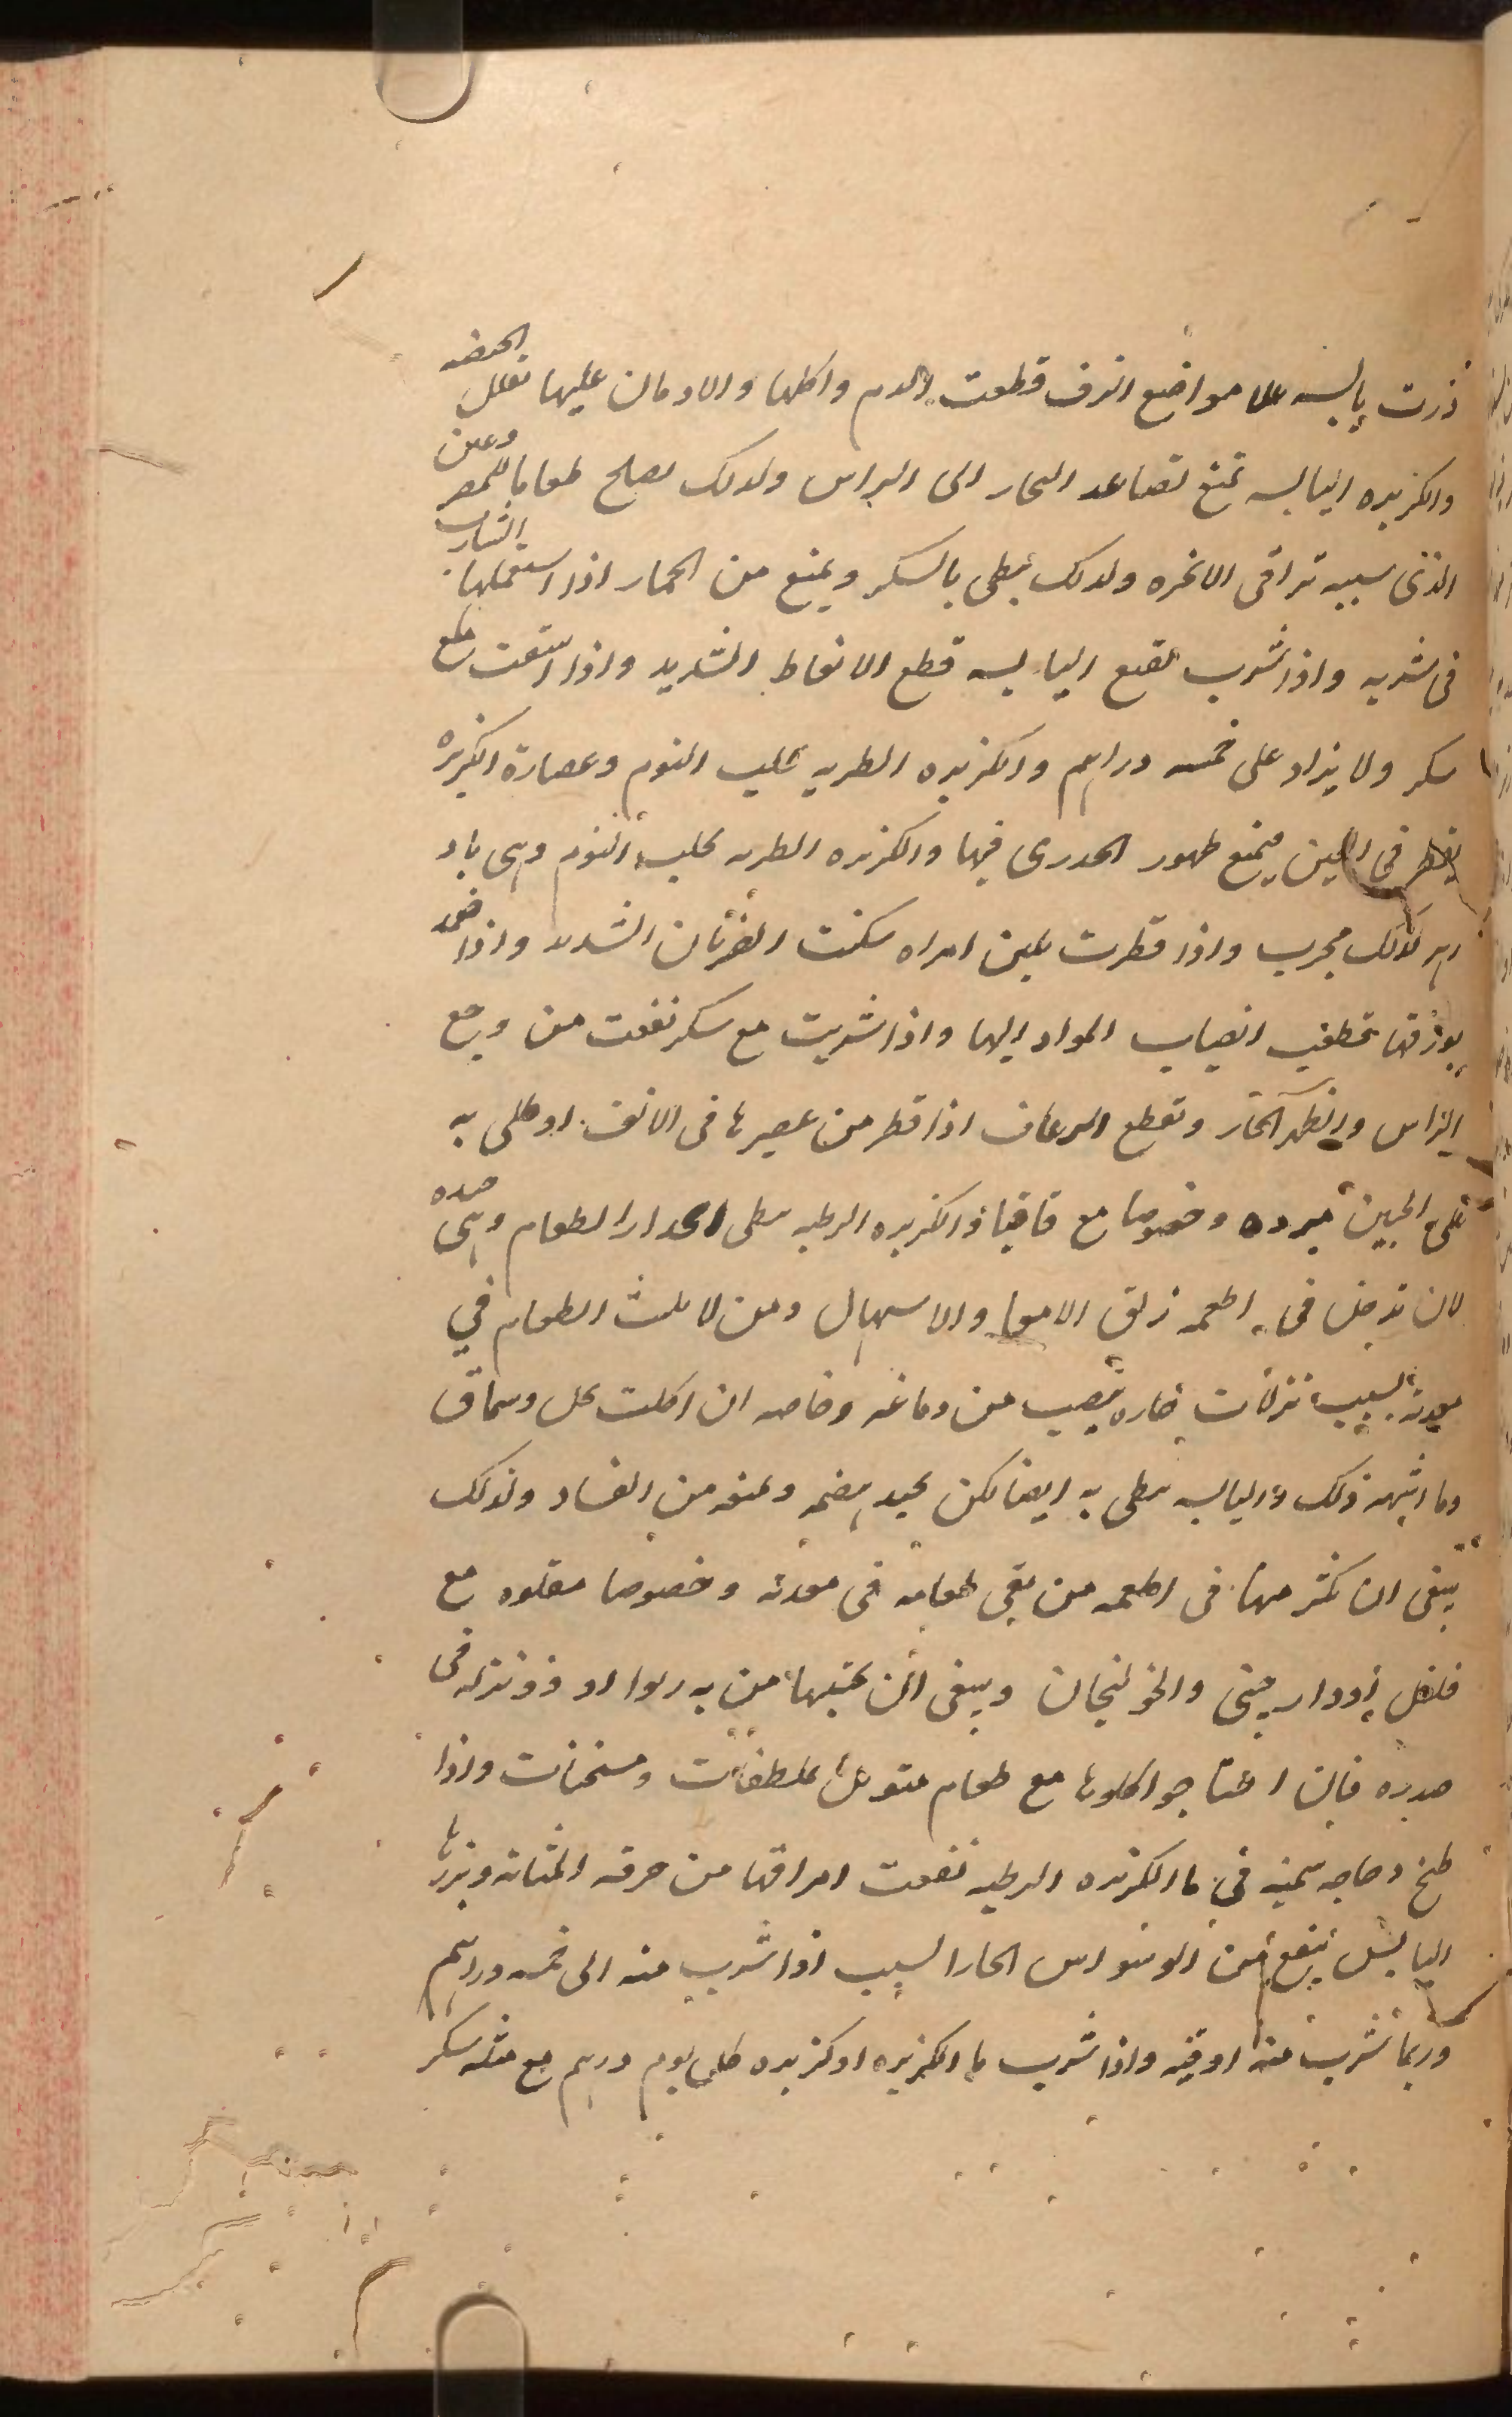 ذرت يابسه علا مواضع النزف قطعت الدم واكلها والادمان عليها تقلل الحيضه
والكزبره اليابسه تمنع تصاعد البخار الى الراس ولذلك يصلح طعاما للمصروعين
الذى سببه تراقى الابخره ولذلك يبطى بالسكر ويمنع من الخمار اذا استعملها الشارب
فى شربه واذا شرب نقيع اليابسه قطع الانعاظ الشديد واذا استفت مع
سكر ولا يزاد على خمسه دراهم والكزبره الطريه تجلب النوم وعصارة الكزبره
يقطر فى العين فيمنع ظهور الجدرى فيها والكزبره الطريه تجلب النوم وهى باد
زهر لذلك مجرب واذا قطرت بلبن امراه سكنت الضربان الشديد واذا ضمد
بورقها تحطب انصباب المواد اليها واذا شربت مع سكر نفعت من وجع
الراس والظهر الحار وتقطع الرعاف اذا قطر من عصيرها فى الانف او طلى به
على الجبين مبرده وخصوصا مع قاقيا والكزبره الرطبه يبطى انحدار الطعام وهى جيده
لان تدخل فى اطعمه زلق الامعا والاسهال ومن لا يلبث الطعام في
معدته بسبب نزلات حاره تنصب من دماغه وخاصه ان اكلت بخل وسماق
وما اشبه ذلك واليابسه يبطى به ايضا لكن يجيد هضمه ويمنعه من الفساد ولذلك
ينبغى ان يكثر منها فى اطعمه من يقى طعامه فى معدته وخصوصا مقلوه مع
فلفل او دار صينى والخولنجان وينبغى ان يجتنبها من به ربوا او ذو نزله فى
صدره فان احتاجوا اكلوها مع طعام متوبل بملطفات ومسخنات واذا
طبخ دجاجه سمينه فى ما الكزبره الرطبه نفعت امراقها من حرقه المثانه وبزرها
اليابس ينفع من الوسواس الحار السبب اذا شرب منه الى خمسه دراهم
وربما شرب منه اوقيه واذا شرب ما الكزبره او كزبره كل يوم درهم مع مثله سكر